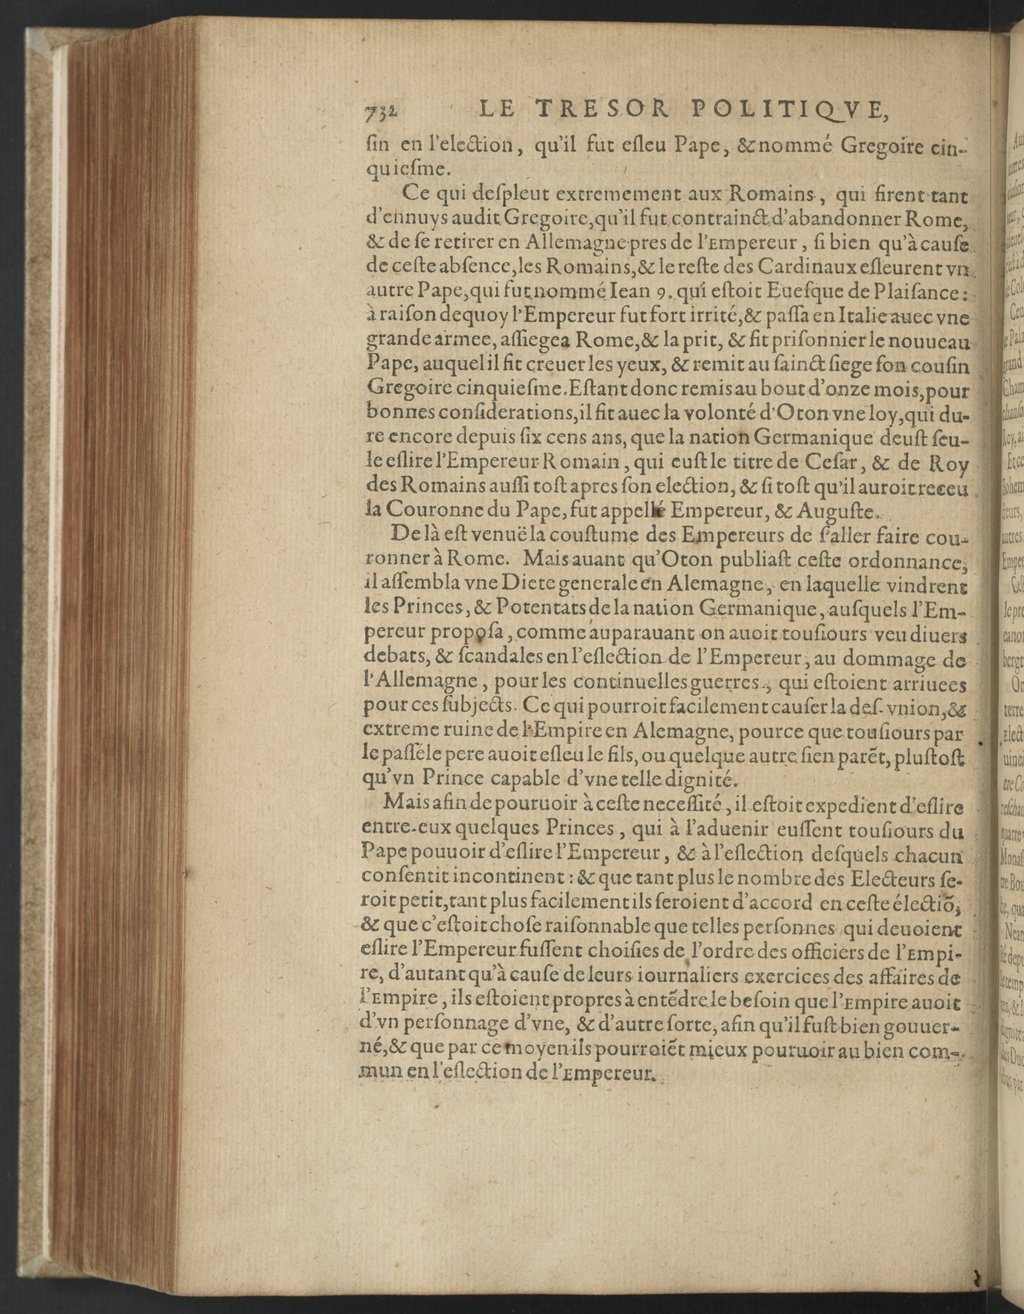 732 LE TRESOR POLITIQVE,
ſin en l'election, qu'il fut eſleu Pape, & nommé Gregoire cin-
quieſme.
Ce qui deſpleut extremement aux Romains, qui firent tant
d'ennuys audit Gregoire, qu'il fut contrainct d'abandonner Rome,
& de ſe retirer en Allemagne pres de l'Empereur, ſi bien qu'à cauſe
de ceſte abſence, les Romains, & le reſte des Cardinaux eſleurent vn
autre Pape, qui fut nommé Iean 9. qui eſtoit Eueſque de Plaiſance:
à raiſon dequoy l'Empereur fut fort irrité, & paſſa en Italie auec vne
grande armee, aſſiegea Rome, & la prit, & fit priſonnier le nouueau
Pape, auquel il fit creuer les yeux, & remit au ſainct ſiege ſon couſin
Gregoire cinquieſme. Eſtant donc remis au bout d'onze mois, pour
bonnes conſiderations, il fit auec la volonté d'Oton vne loy, qui du-
re encore depuis ſix cens ans, que la nation Germanique deuſt ſeu-
le eſlire l'Empereur Romain, qui euſt le titre de Ceſar, & de Roy
des Romains auſſi toſt apres ſon election, & ſi toſt qu'il auroit receu
la Couronne du Pape, fut appellé Empereur, & Auguſte.
De là eſt venuë la couſtume des Empereurs de ſ'aller faire cou-
ronner à Rome. Mais auant qu'Oton publiaſt ceſte ordonnance,
il aſſembla vne Diete generale en Alemagne, en laquelle vindrent
les Princes, & Potentats de la nation Germanique, auſquels l'Em-
pereur propoſa, comme auparauant on auoit touſiours veu diuers
debats, & ſcandales en l'eſlection de l'Empereur, au dommage de
l'Allemagne, pour les continuelles guerres, qui eſtoient arriuees
pour ces ſubjects. Ce qui pourroit facilement cauſer la deſ-vnion, &
extreme ruine de l'Empire en Alemagne, pource que touſiours par
le paſſé le pere auoit eſleu le fils, ou quelque autre ſien parẽt, pluſtoſt
qu'vn Prince capable d'vne telle dignité.
Mais afin de pouruoir à ceſte neceſſité, il eſtoit expedient d'eſlire
entre-eux quelques Princes, qui à l'aduenir euſſent touſiours du
Pape pouuoir d'eſlire l'Empereur, & à l'eſlection deſquels chacun
conſentit incontinent: & que tant plus le nombre des Electeurs ſe-
roit petit, tant plus facilement ils ſeroient d'accord en ceſte électiõ,
& que c'eſtoit choſe raiſonnable que telles perſonnes qui deuoient
eſlire l'Empereur fuſſent choiſies de l'ordre des officiers de l'Empi-
re, d'autant qu'à cauſe de leurs iournaliers exercices des affaires de
l'Empire, ils eſtoient propres à entẽdre le beſoin que l'Empire auoit
d'vn perſonnage d'vne, & d'autre ſorte, afin qu'il fuſt bien gouuer-
né, & que par ce moyen ils pourroiẽt mieux pouruoir au bien com-
mun en l'eſlection de l'Empereur.